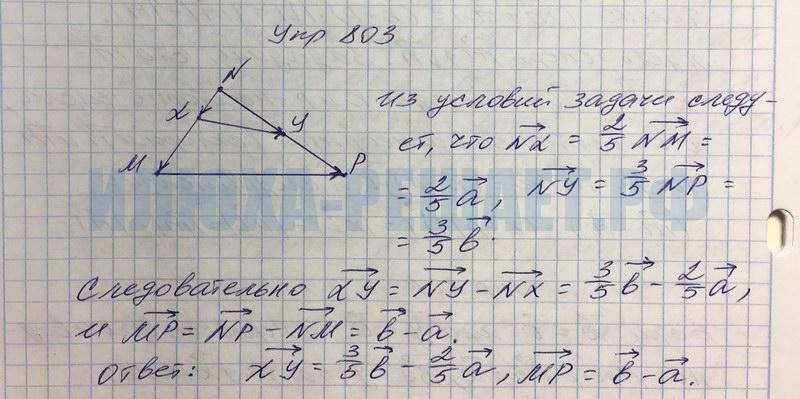 Упр 803
N
X
У
M
P
Из условий задачи следу-
ет, что NX = 2/5 NM =
= 2/5 a, NУ = 3/5 NP =
= 3/5 b.
МИШКА-РЕШАЕТ.РФ
Следовательно XУ = NУ - NX = 3/5 b - 2/5 a,
и MP = NP - NM = b - a.
Ответ: XУ = 3/5 b - 2/5 a, MP = b - a.